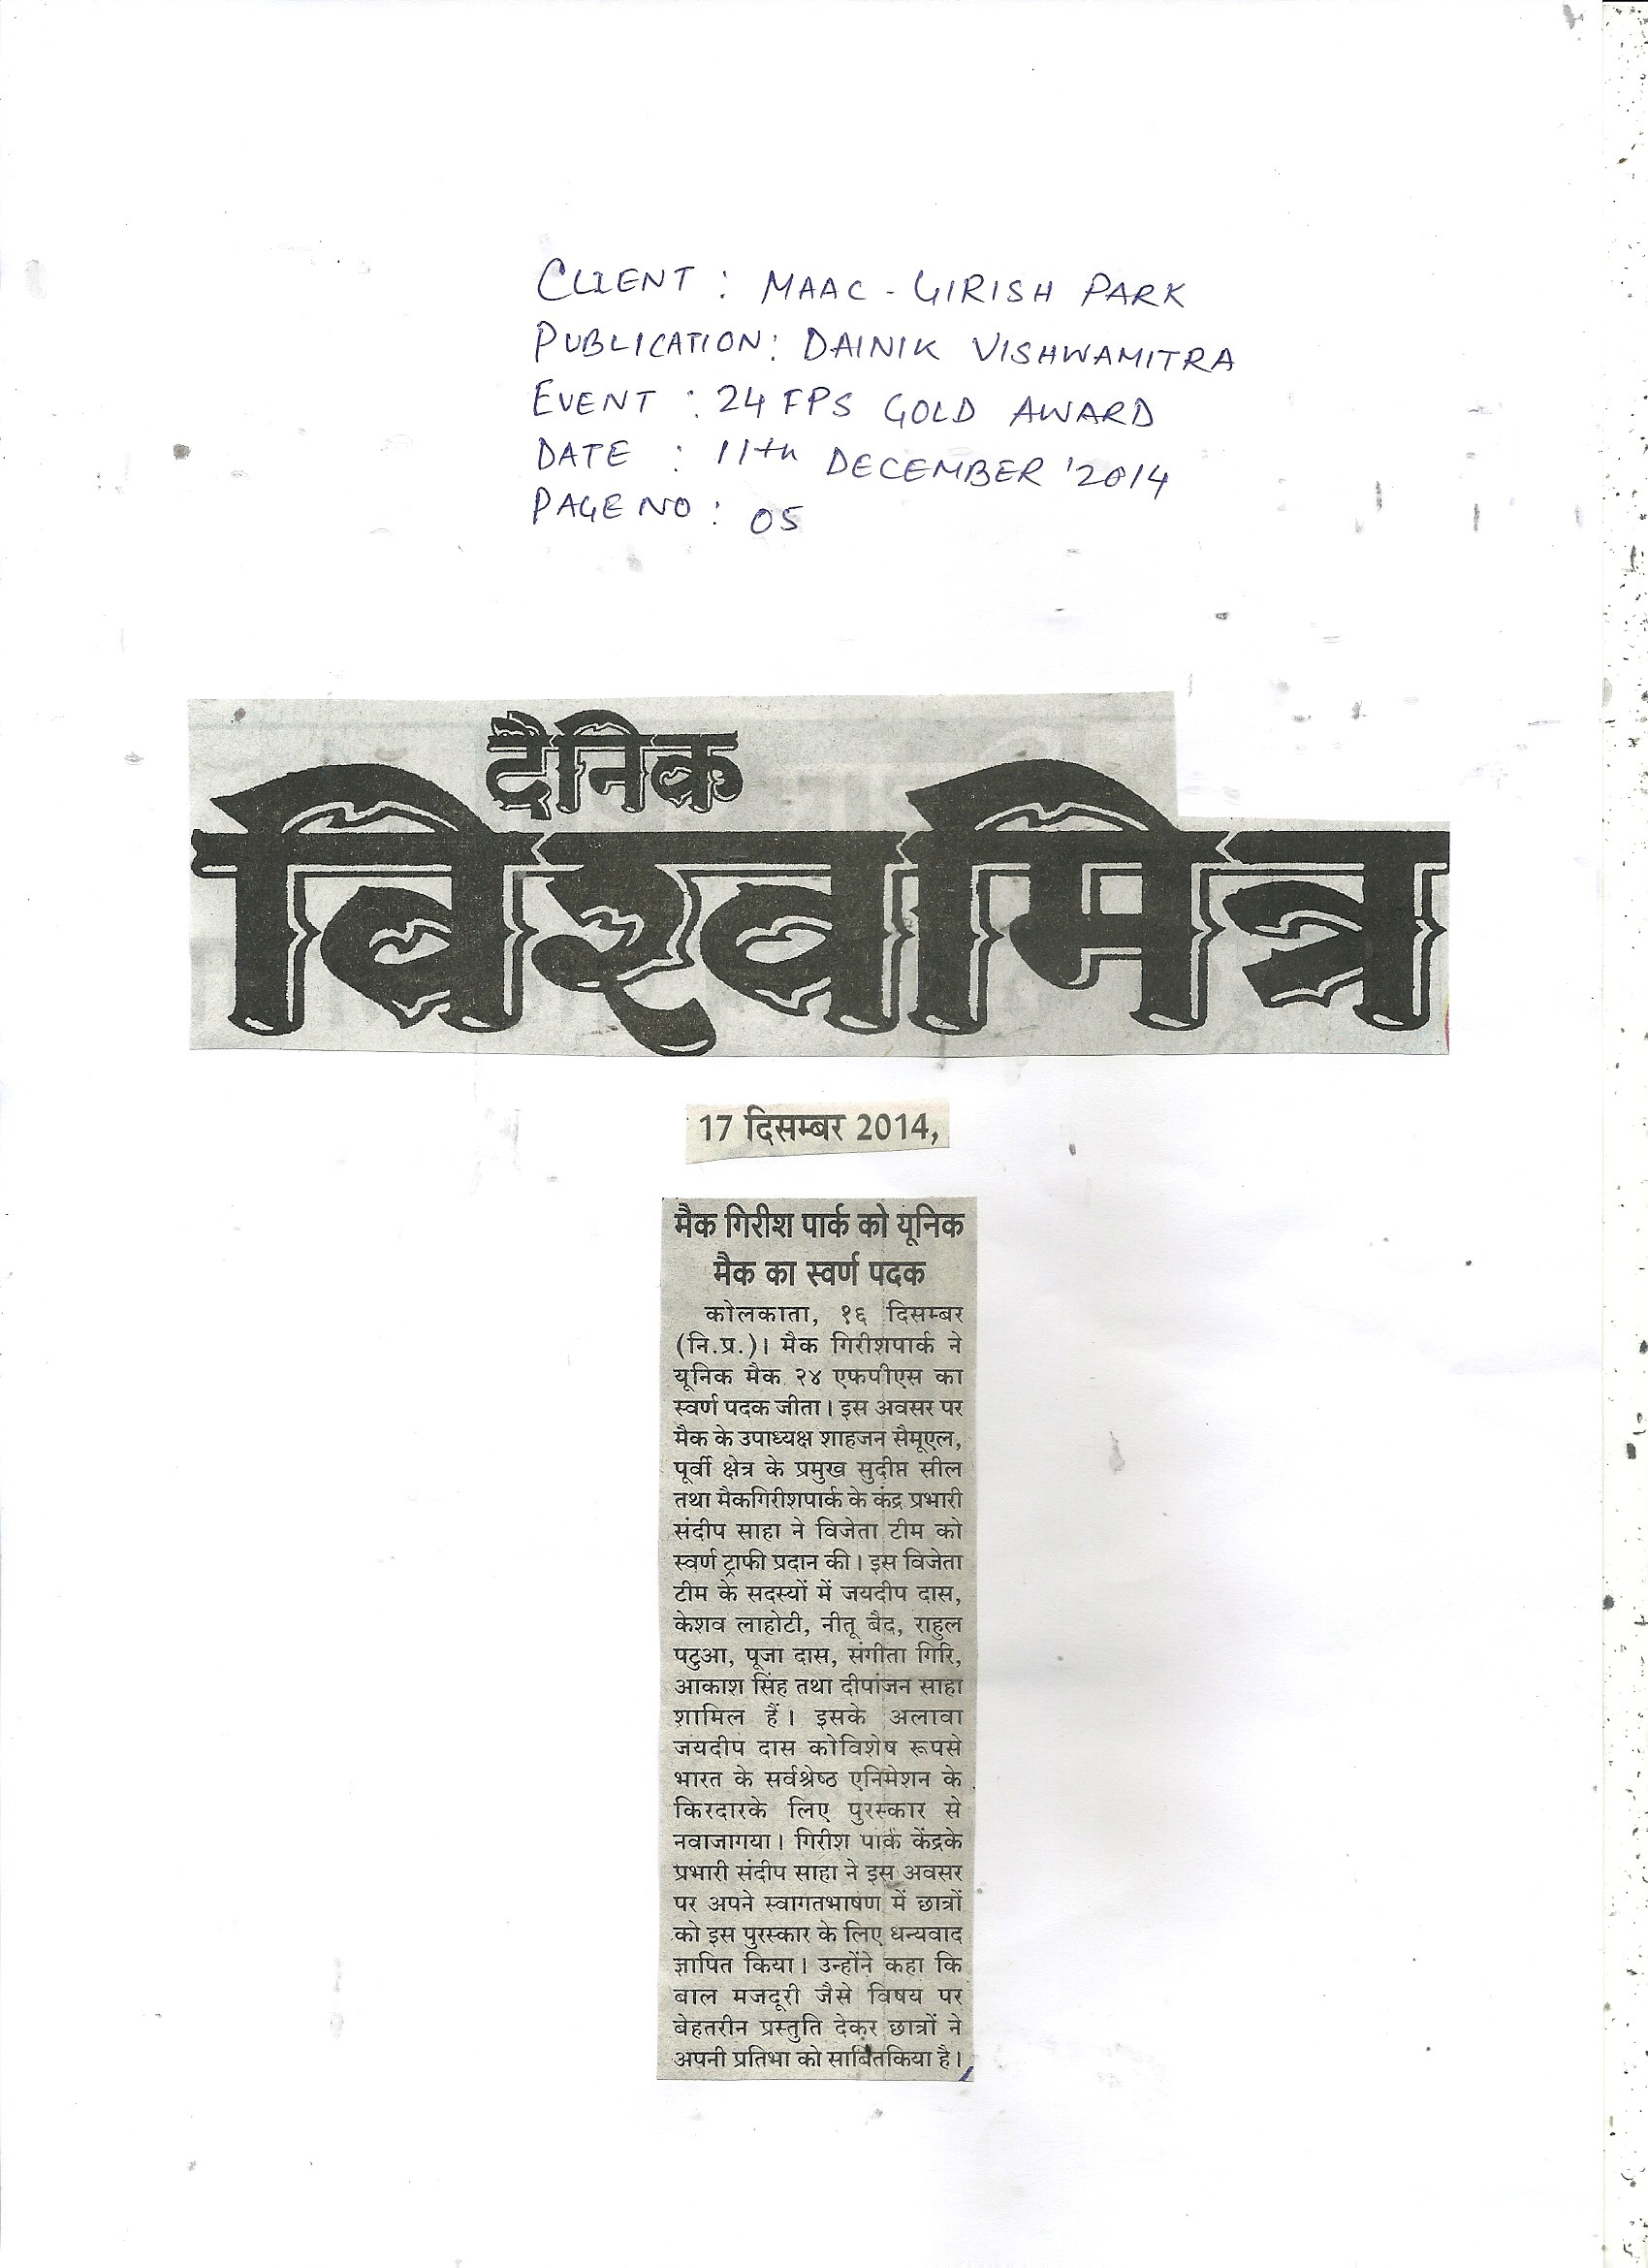 CLIENT : MAAC - GIRISH PARK
PUBLICATION : DAINIK VISHWAMITRA
EVENT : 24 FPS GOLD AWARD
DATE : 11th DECEMBER '2014
PAGE NO : 05
दैनिक
विश्वमित्र
17 दिसम्बर 2014,
मैक गिरीश पार्क को यूनिक
मैक का स्वर्ण पदक
कोलकाता, १६ दिसम्बर
(नि.प्र.)। मैक गिरीशपार्क ने
यूनिक मैक २४ एफपीएस का
स्वर्ण पदक जीता। इस अवसर पर
मैक के उपाध्यक्ष शाहजन सैमूएल,
पूर्वी क्षेत्र के प्रमुख सुदीप्त सील
तथा मैकगिरीशपार्क के कंद्र प्रभारी
संदीप साहा ने विजेता टीम को
स्वर्ण ट्राफी प्रदान की। इस विजेता
टीम के सदस्यों में जयदीप दास,
केशव लाहोटी, नीतू बैद, राहुल
पटुआ, पूजा दास, संगीता गिरि,
आकाश सिंह तथा दीपांजन साहा
शामिल हैं। इसके अलावा
जयदीप दास कोविशेष रूपसे
भारत के सर्वश्रेष्ठ एनिमेशन के
किरदारके लिए पुरस्कार से
नवाजागया। गिरीश पार्क केंद्रके
प्रभारी संदीप साहा ने इस अवसर
पर अपने स्वागतभाषण में छात्रों
को इस पुरस्कार के लिए धन्यवाद
ज्ञापित किया। उन्होंने कहा कि
बाल मजदूरी जैसे विषय पर
बेहतरीन प्रस्तुति देकर छात्रों ने
अपनी प्रतिभा को साबितकिया है।